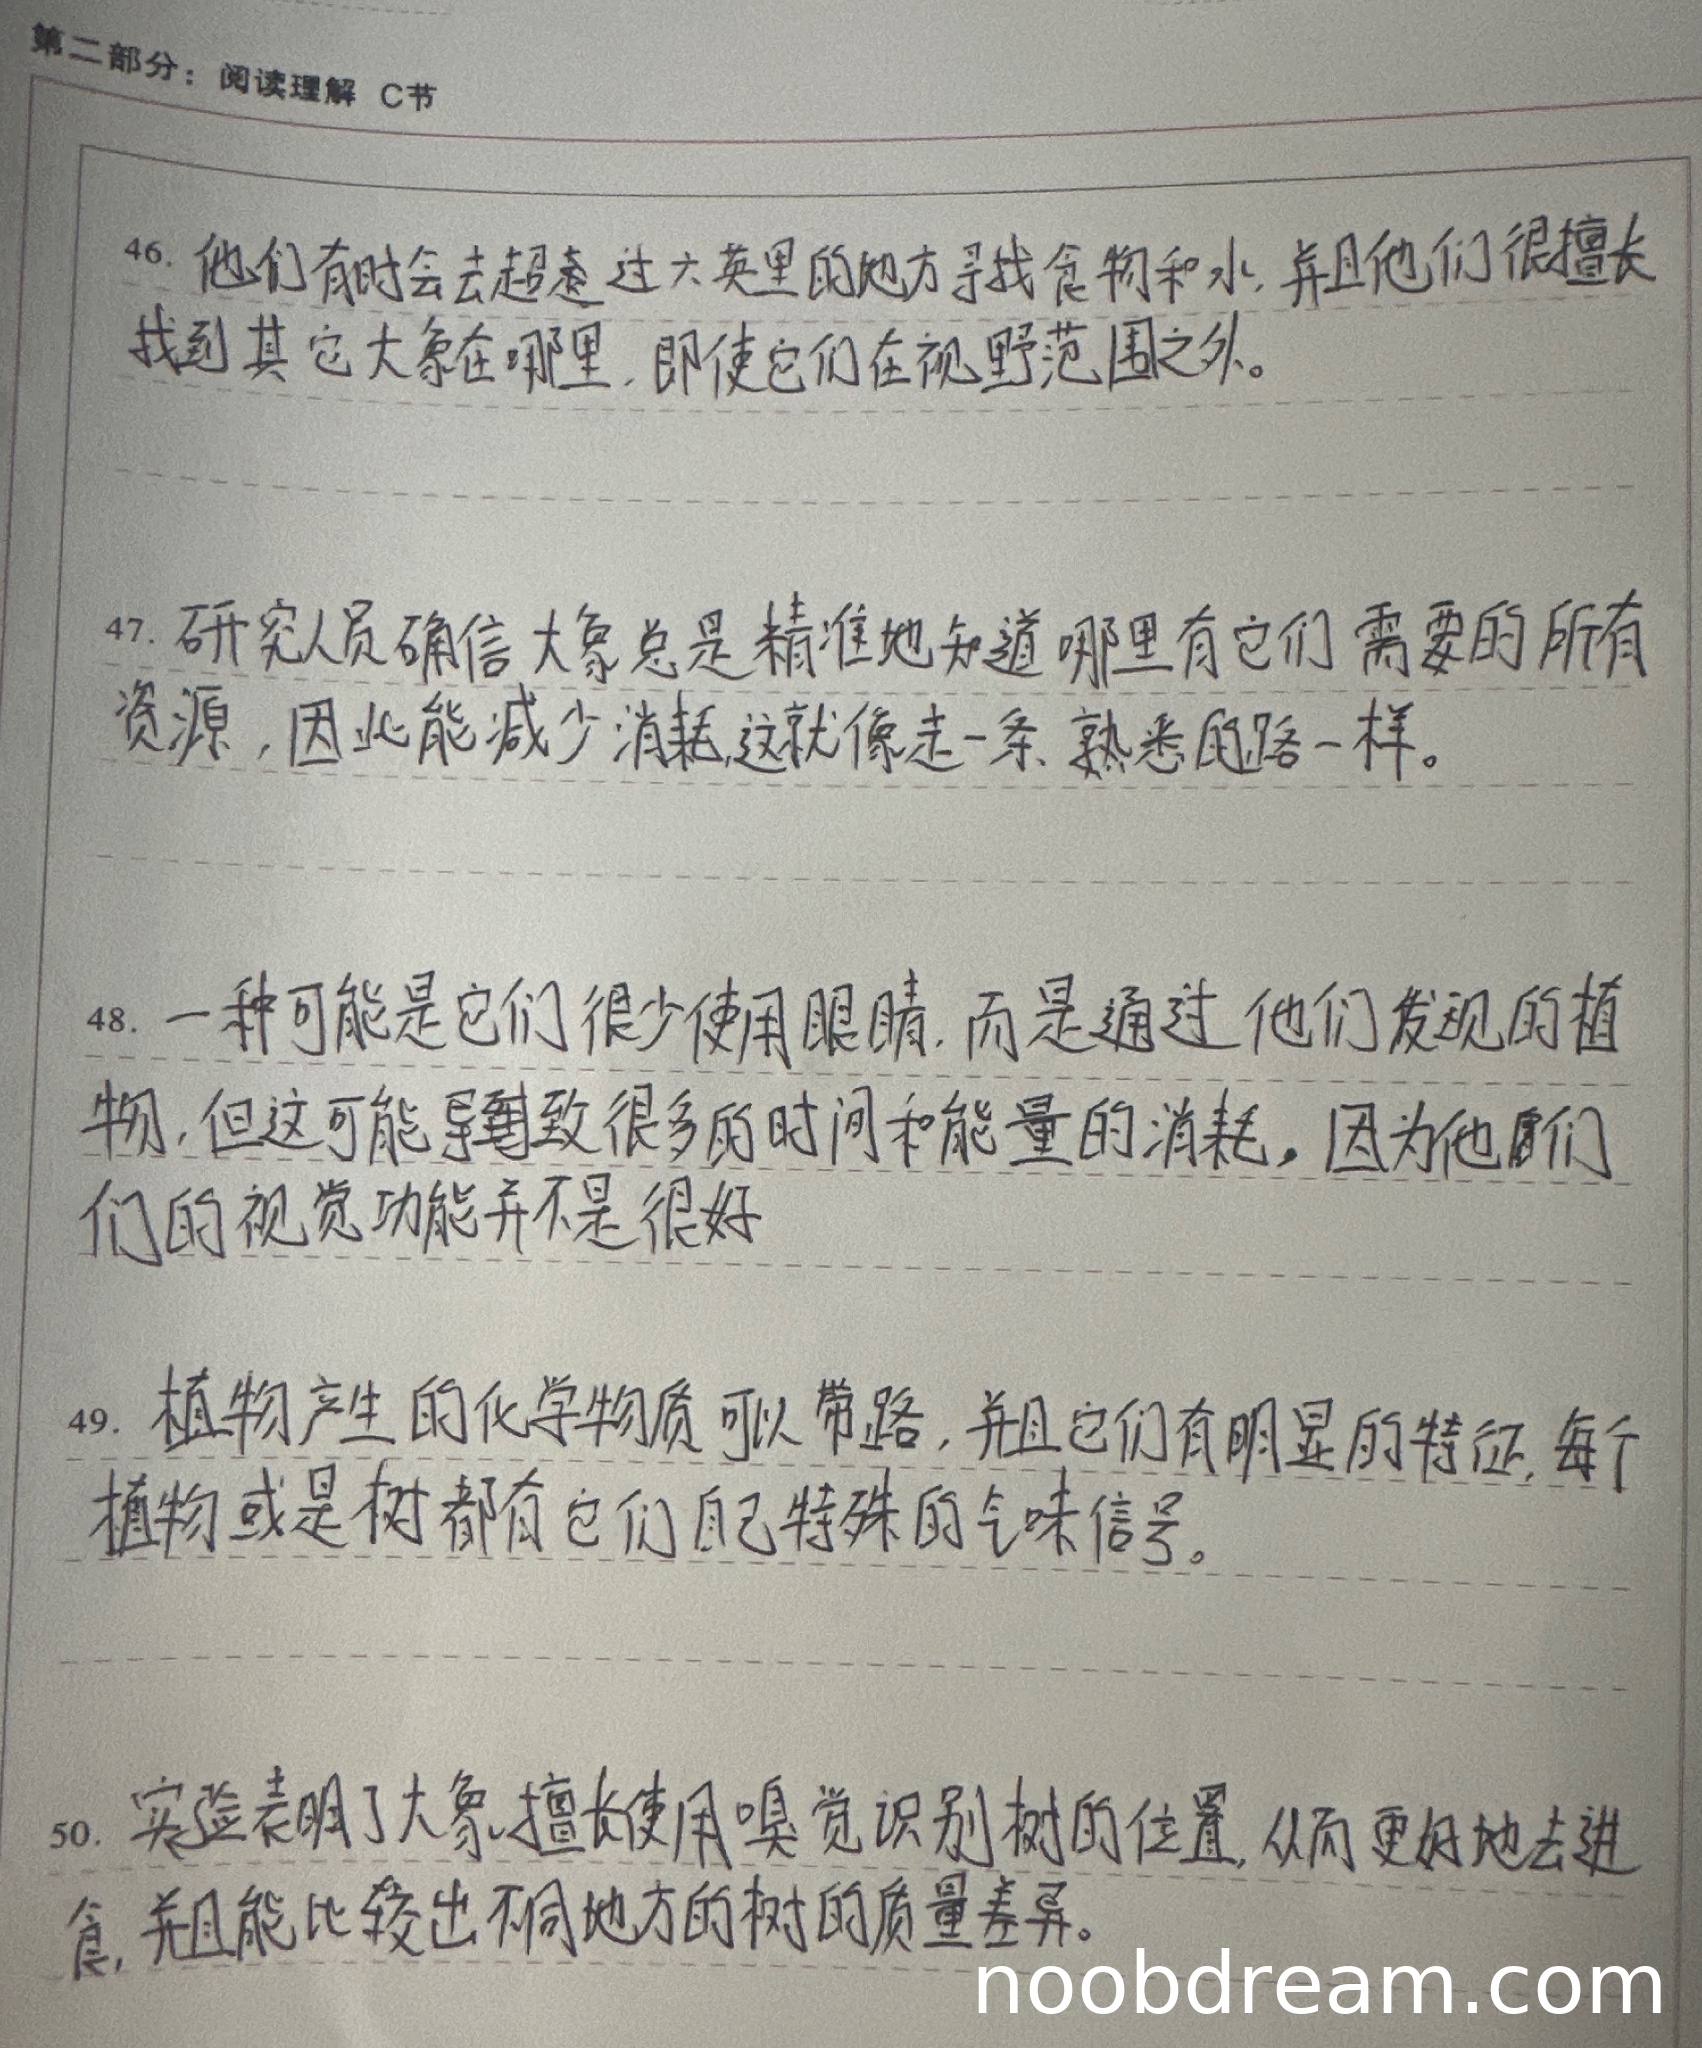 第二部分：阅读理解 C节
46. 他们有时会去超过六英里的地方寻找食物和水，并且他们很擅长
找到其它大象在哪里，即使它们在视野范围之外。
47. 研究人员确信大象总是精准地知道哪里有它们需要的所有
资源，因此能减少消耗，这就像走一条熟悉的路一样。
48. 一种可能是它们很少使用眼睛，而是通过他们发现的植
物，但这可能导致很多的时间和能量的消耗。因为他们
们的视觉功能并不是很好
49. 植物产生的化学物质可以带路，并且它们有明显的特征，每个
植物或是树都有它们自己特殊的气味信号。
50. 实验表明了大象擅长使用嗅觉识别树的位置，从而更好地去进
食，并且能比较出不同地方的树的质量差异。
noobdream.com